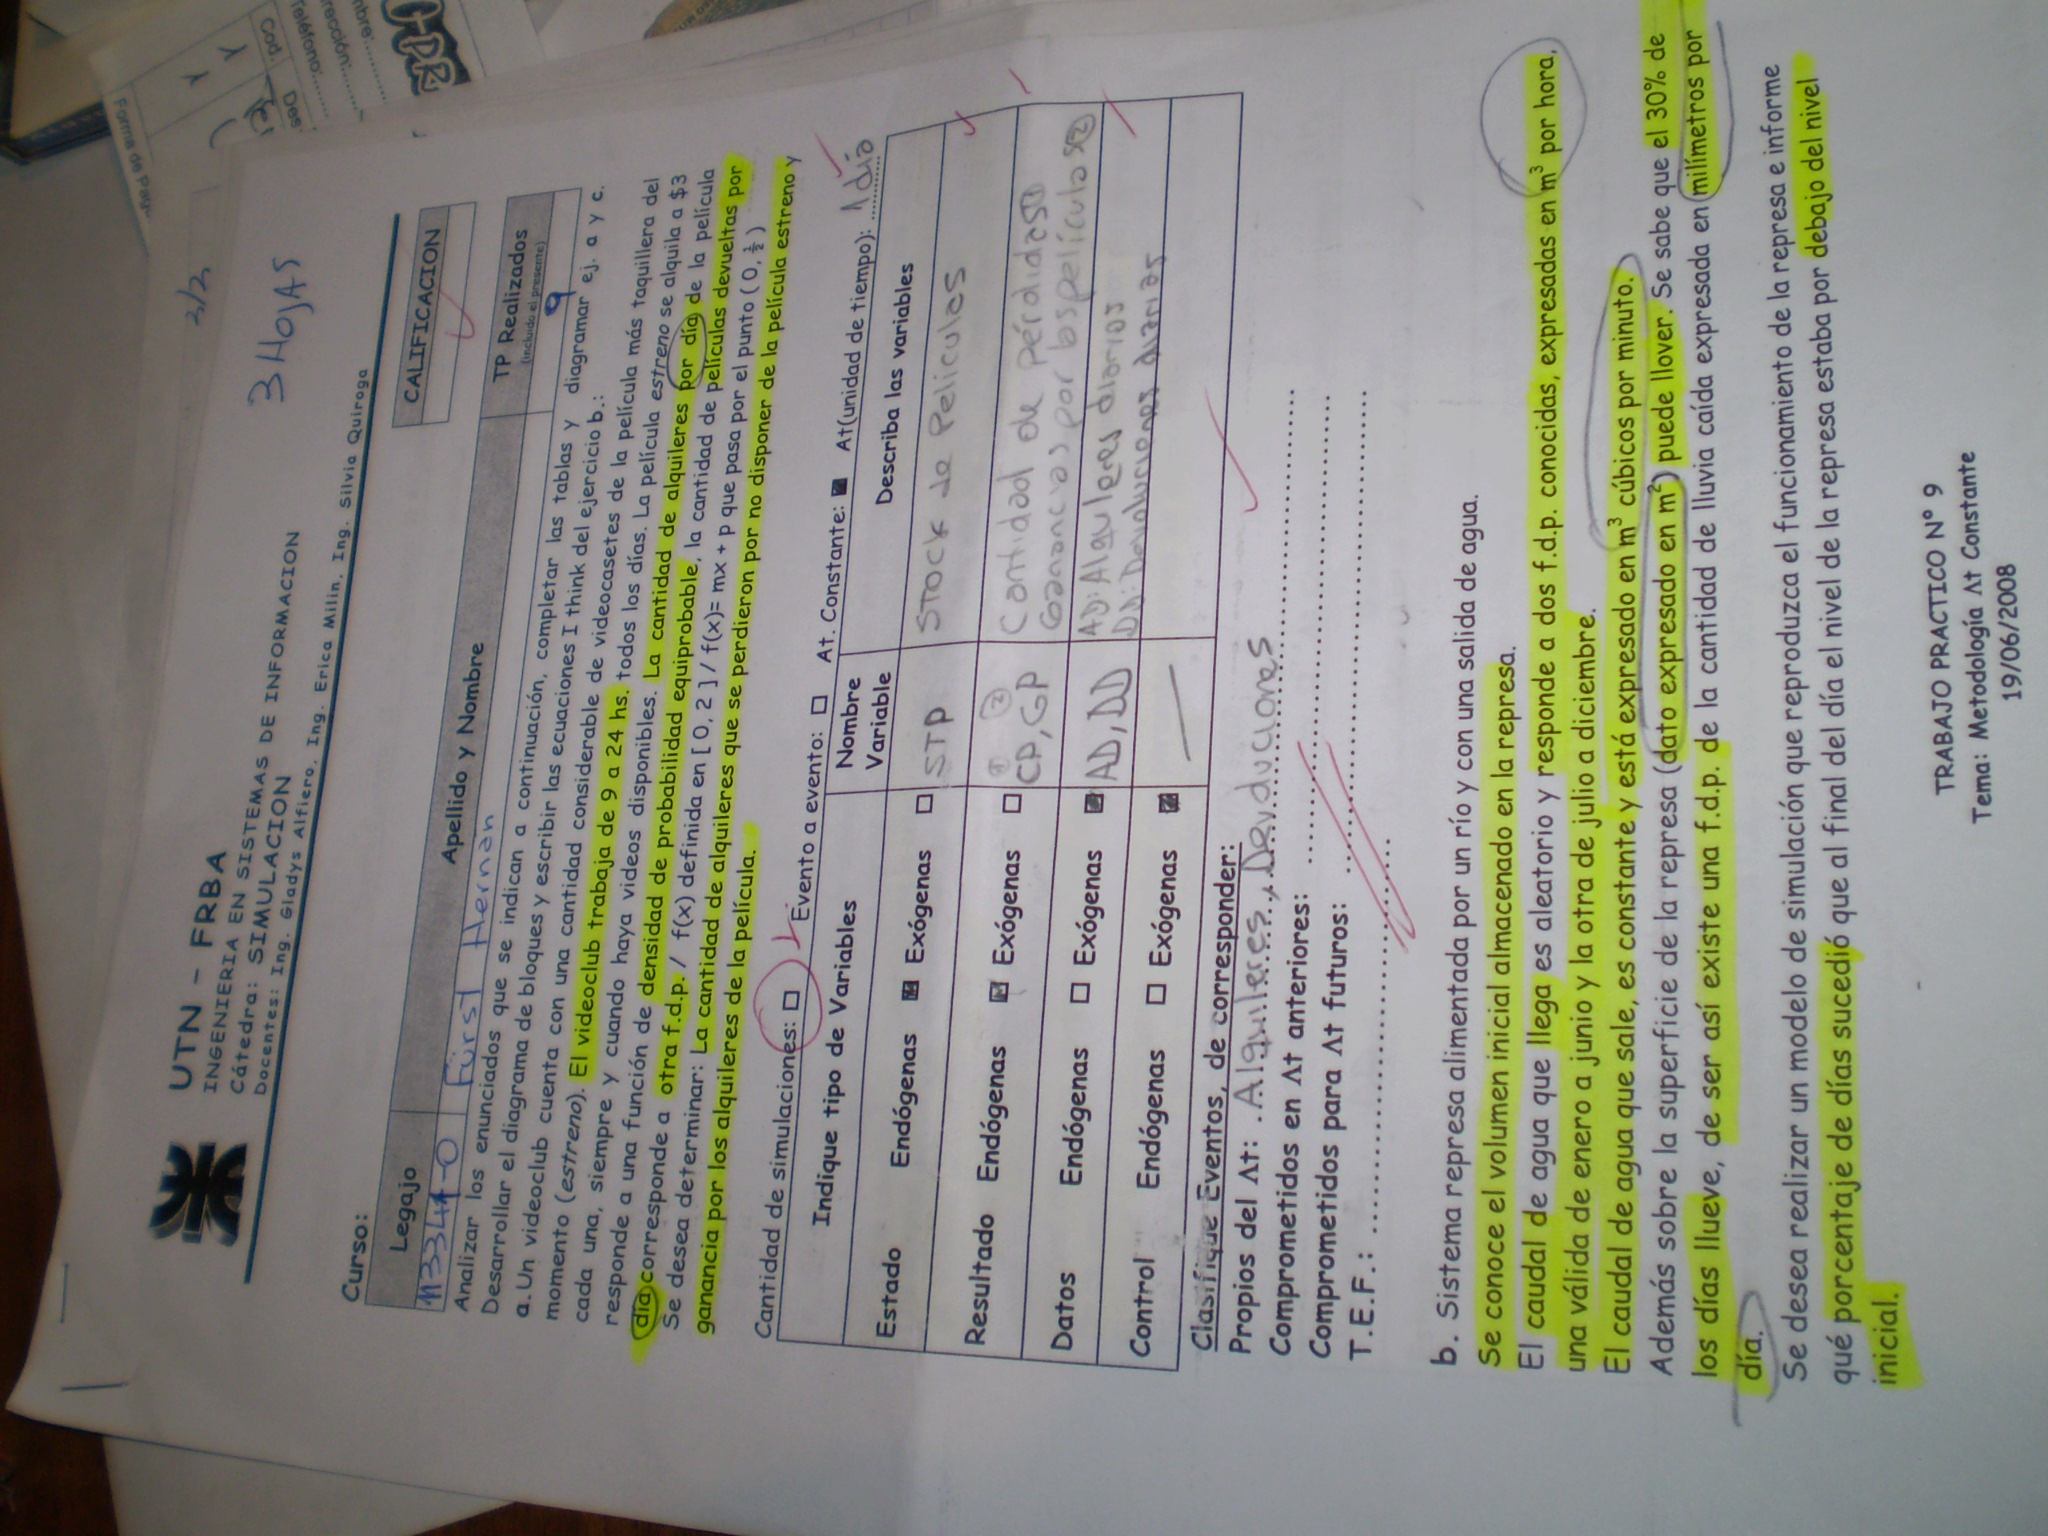 3/3
3 HOJAS
UTN - FRBA
INGENIERIA EN SISTEMAS DE INFORMACION
Cátedra: SIMULACION
Docentes: Ing. Gladys Alfiero, Ing. Erica Milin, Ing. Silvia Quiroga
Curso:
CALIFICACION
Legajo
Apellido y Nombre
TP Realizados
(incluido el presente)
Fürst Hernán
9
Analizar los enunciados que se indican a continuación, completar las tablas y diagramar ej. a y c.
Desarrollar el diagrama de bloques y escribir las ecuaciones I think del ejercicio b.:
a. Un videoclub cuenta con una cantidad considerable de videocasetes de la película más taquillera del
momento (estreno). El videoclub trabaja de 9 a 24 hs. todos los días. La película estreno se alquila a $3
cada una, siempre y cuando haya videos disponibles. La cantidad de alquileres por día de la película
responde a una función de densidad de probabilidad equiprobable, la cantidad de películas devueltas por
día corresponde a otra f.d.p. / f(x) definida en [ 0, 2 ] / f(x)= mx + p que pasa por el punto ( 0, ½ )
Se desea determinar: La cantidad de alquileres que se perdieron por no disponer de la película estreno y
ganancia por los alquileres de la película.
Cantidad de simulaciones: □ Evento a evento: □ Λt. Constante: ■ Λt(unidad de tiempo): 1 día
Indique tipo de Variables
Nombre Variable
Describa las variables
Estado Endógenas ☒ Exógenas □ STP Stock de Películas
Resultado Endógenas ☒ Exógenas □ CP, GP Cantidad de pérdidas ①
① ② Ganancias por las películas ②
Datos Endógenas □ Exógenas ☒ AD, DD AD: Alquileres diarios
DD: Devoluciones diarias
Control Endógenas □ Exógenas ☒ —
Clasifique Eventos, de corresponder:
Propios del Λt: Alquileres, Devoluciones
Comprometidos en Λt anteriores:
Comprometidos para Λt futuros:
T.E.F.:
b. Sistema represa alimentada por un río y con una salida de agua.
Se conoce el volumen inicial almacenado en la represa.
El caudal de agua que llega es aleatorio y responde a dos f.d.p. conocidas, expresadas en m³ por hora,
una válida de enero a junio y la otra de julio a diciembre.
El caudal de agua que sale, es constante y está expresado en m³ cúbicos por minuto.
Además sobre la superficie de la represa (dato expresado en m²) puede llover. Se sabe que el 30% de
los días llueve, de ser así existe una f.d.p. de la cantidad de lluvia caída expresada en milímetros por
día.
Se desea realizar un modelo de simulación que reproduzca el funcionamiento de la represa e informe
qué porcentaje de días sucedió que al final del día el nivel de la represa estaba por debajo del nivel
inicial.
TRABAJO PRACTICO N° 9
Tema: Metodología Λt Constante
19/06/2008